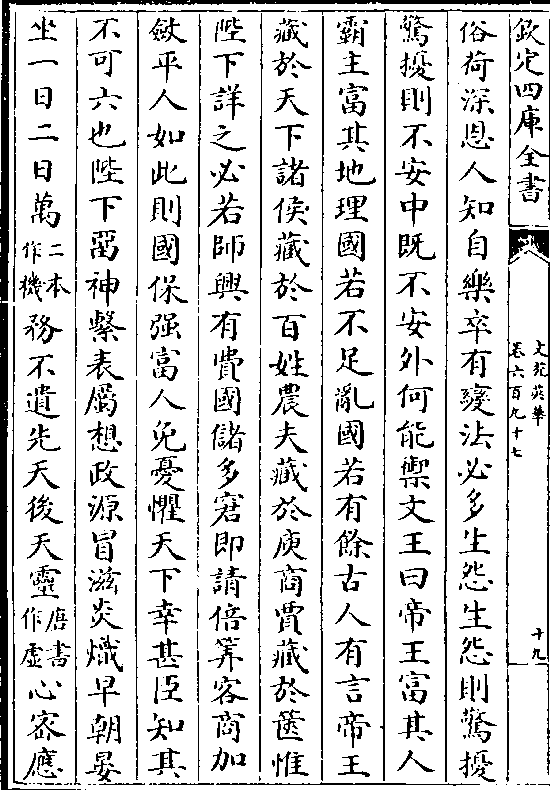 欽定四庫全書
文苑英華
卷六百九十七
十九
俗荷深恩人知自樂卒有變法必多生怨生怨則驚擾
驚擾則不安中既不安外何能禦文王曰帝王富其人
霸主富其地理國若不足亂國若有餘古人有言帝王
藏於天下諸侯藏於百姓農夫藏於庾商賈藏於篋惟
陛下詳之必若師興有費國儲多窘即請倍筭客商加
斂平人如此則國保强富人免憂懼天下幸甚臣知其
不可六也陛下留神繫表屬想政源冒滋炎熾早朝晏
坐一日二日萬二本作機務不遺先天後天靈唐書作虚心宻應